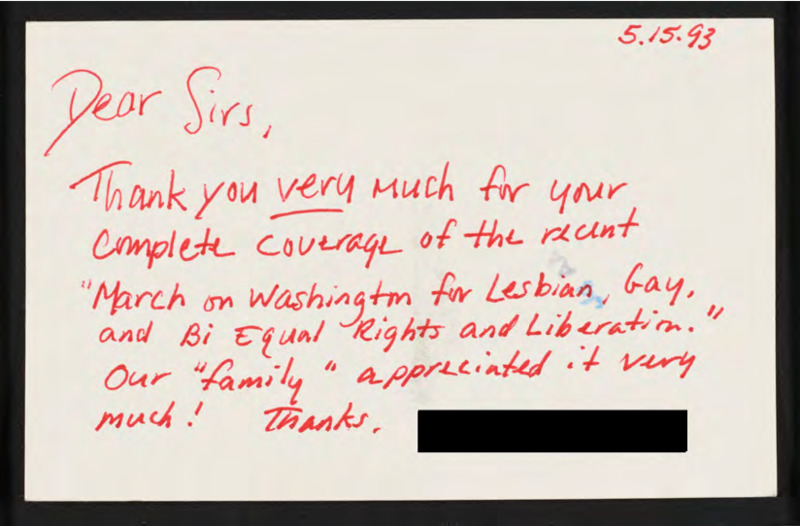 5.15.93
Dear Sirs,
Thank you very much for your
complete coverage of the recent
"March on Washington for Lesbian, Gay,
and Bi Equal Rights and Liberation."
Our "family" appreciated it very
much! Thanks.